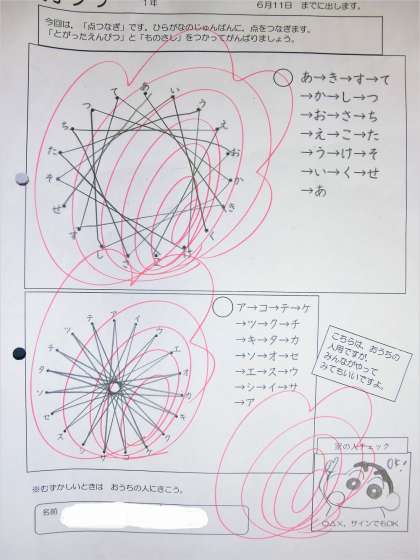 １年
６月１１日 までに出します。
今回は、「点つなぎ」です。ひらがなのじゅんばんに、点をつなぎます。
「とがったえんぴつ」と「ものさし」をつかってがんばりましょう。
あ→き→す→て
→か→し→つ
→お→さ→ち
→え→こ→た
→う→け→そ
→い→く→せ
→あ
あ
い
う
え
お
か
き
く
け
こ
さ
し
す
せ
そ
た
ち
つ
て
ア→コ→テ→ケ
→ツ→ク→チ
→キ→タ→カ
→ソ→オ→セ
→エ→ス→ウ
→シ→イ→サ
→ア
ア
イ
ウ
エ
オ
カ
キ
ク
ケ
コ
サ
シ
ス
セ
ソ
タ
チ
ツ
テ
こちらは、おうちの
人用ですが、
みんながやって
みてもいいですよ。
家の人チェック
OK!
○△×、サインでもOK
※むずかしいときは おうちの人にきこう。
名前